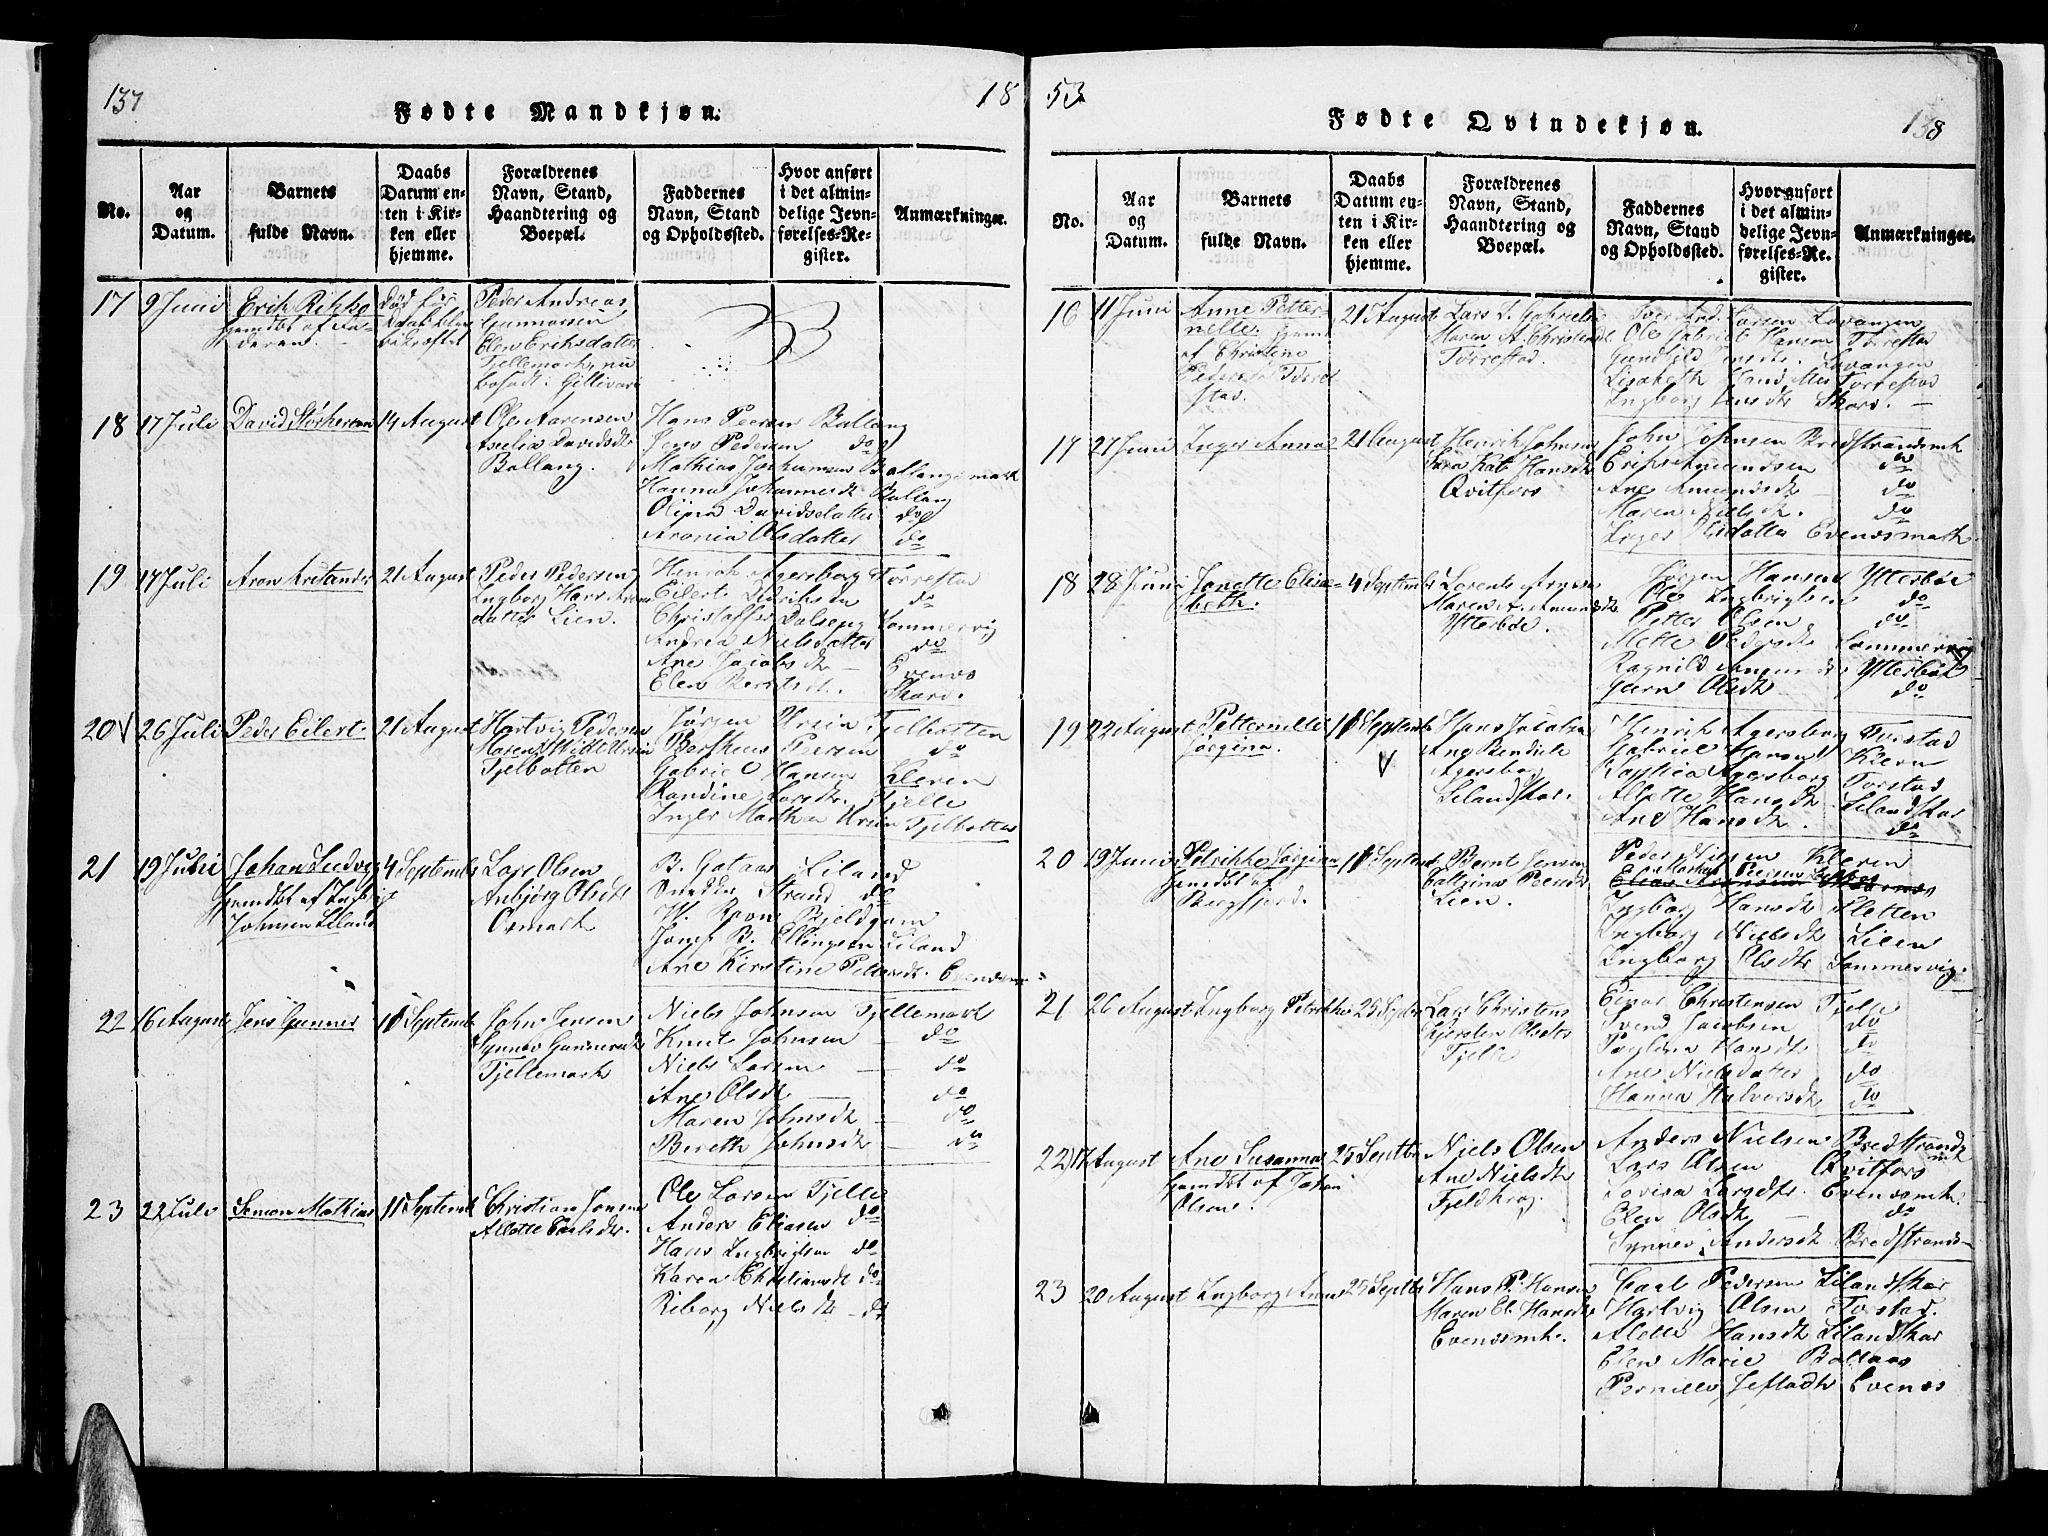 137
18
Fødte Mandkjøn.
No.
Aar
og
Datum.
Barnets
fulde Navn.
Daabs
Datum en-
ten i Kir-
ken eller
hjemme.
Forældrenes
Navn, Stand,
Haandtering og
Boepæl.
Faddernes
Navn, Stand
og Opholdssted.
Hvor anført
i det almin-
delige Jevn-
førelses-Re-
gister.
Anmærkninger.
17 9 Juni Erik Rikko
hjemdøbt af Fa-
deren.
død før
Daab blev
bekræftet
Peder Andreas
Gunnarsen
Elen Eriksdatter
Tjellemark, nu
bosadt i Gillivara
18 17 Juli David Størkersen 14 August
Ole Aarensen
Amelia Davidsdtr
Ballang.
Hans Peersen Ballang
Jens Pedersen do
Mathias Jochumsen Ballangsmark
Hanna Johannesdt Ballang
Olina Davidsdatter do
Aronia Olsdatter do
19 17 Juli Aron Aristander 21 August
Peder Pedersen
Ingborg Hans
datter Lien.
Henrik Agersborg Torrestad
Eilert Didriksen do
Christoffer Dalseng Sommervig
Andrea Nielsdatter do
Ane Jacobsdt Evenes
Elen Berntsdt. Skard.
20 26 Juli Peder Eilert 21 August
Hartvig Pedersen
Maren
Tjelbotten
Jørgen Ursin Tjelbotten
Peersen do
Gabriel Hansen Kleren
Randine Larsdtr. Tjelle
Inger Martha Ursin Tjelbotten
21 19 Julii Johan Ludvig
hjemdøbt af Ingbrigt
Johnsen Liland
4 September
Lars Olsen
Anbjørg Olsdtr
Osmark
B. Gataas Liland
Strand do
W. Bjeldgam
Josef B. Ellingsen Liland
Ane Kirstine Petersdt. Evenes
22 16 August Jens Gunner 11 Septemb
John Jensen
Synnev Gunnersdt
Tjellemark
Niels Johnsen Tjellemark
Knut Johnsen do
Niels Larsen do
Ane Olsdt do
Maren Johnsdt do
Bereth Johnsdt do
23 22 Juli Simon Mathias 11 Septemb
Christian Jonsen
Alette Carlsdtr.
Ole Larsen Tjelle
Anders Eliasen do
Hans Ingbrigtsen do
Karen Christiansdt do
Riborg Nielsdt do
53
138
Fødte Qvindekjøn.
No.
Aar
og
Datum.
Barnets
fulde Navn.
Daabs
Datum en-
ten i Kir-
ken eller
hjemme.
Forældrenes
Navn, Stand,
Haandtering og
Boepæl.
Faddernes
Navn, Stand
og Opholdssted.
Hvor anført
i det almin-
delige Jevn-
førelses-Re-
gister.
Anmærkninger.
16 11 Juni Anne Petter-
nelle. hjemd
af Christine
Peders Torre
stad.
21 August
Lars J. Gabriels
Maren A. Christensdt
Torrestad
Iver And. Larsen Lavangen
Ole Gabriel Hansen Torrestad
Gunhild Lavangen
Lisabeth Torrestad
Ingborg Jensdtr Skard.
17 27 Juni Inger Anna 21 August
Henrik Johnsen
Sara Kat. Hansdt
Qvitfors
John Johnsen Bredstrandsmk
Erik Amundsen do
Ane Amundsdt do
Maren Nielsdt. do
Inger Olsdatter Evenesmark
18 28 Juni Janette Elisa-
beth.
4 Septemb
Lorents Arnesen
Maren A. Amundsdt
Ytterbøe.
Jørgen Hansen Ytterbøe
Ole Ingbrigtsen do
Petter Olsen do
Mette Pedersdt Sommervig
Ragnild Ytterbøe
Olsdt do
19 22 August Petternelle
Jørgina.
11 Septemb
Hans Jacobsen
Ane Bendicte
Agersborg
Lilandskar.
Henrik Agersborg Torstad
Gabriel Hansen Kleren
Agersborg Torstad
Alette Hansdt Lilandskar
Ane Hansdt. do
20 19 Juni Petrikke Jørgina
hjemdøbt af
Bergfjord.
11 Septemb
Bernt Jensen
Cathrina Peersdt
Lien.
Peder Nilsen Kleren
Markus Peersen
Ingborg Hansdt Sletten
Ingborg Nielsdt Lien
Ingborg Olsdtr Sommervig.
21 26 August Ingborg Petrikke 25 Septbr
Lars Christens
Kjersten Olsdtr
Tjelle
Einar Christensen Tjelle
Svend Jacobsen do
Hansdtr do
Ane Nielsdatter do
Hanna Halvorsdt do
22 17 August Ane Susanna
hjemdøbt af Johan
Olsen.
25 Septbr
Niels Olsen
Ane Nielsdtr
Fjeldkrog.
Anders Nielsen Bredstrandsmk
Lars Olsen Qvitfors
Lovisa Larsdtr. Evenesmk.
Elen Olsdt do
Synnev Andersdt Bredstrands-
23 20 August Ingborg Anna 25 Septbr
Hans P. Hansen
Maren El. Hansdtr
Evenesmk.
Carl Pedersen Lilandskar
Hartvig Olsen Torstad.
Alette Hansdt Lilandskar
Elen Marie Bollaas
Pernille Evenes